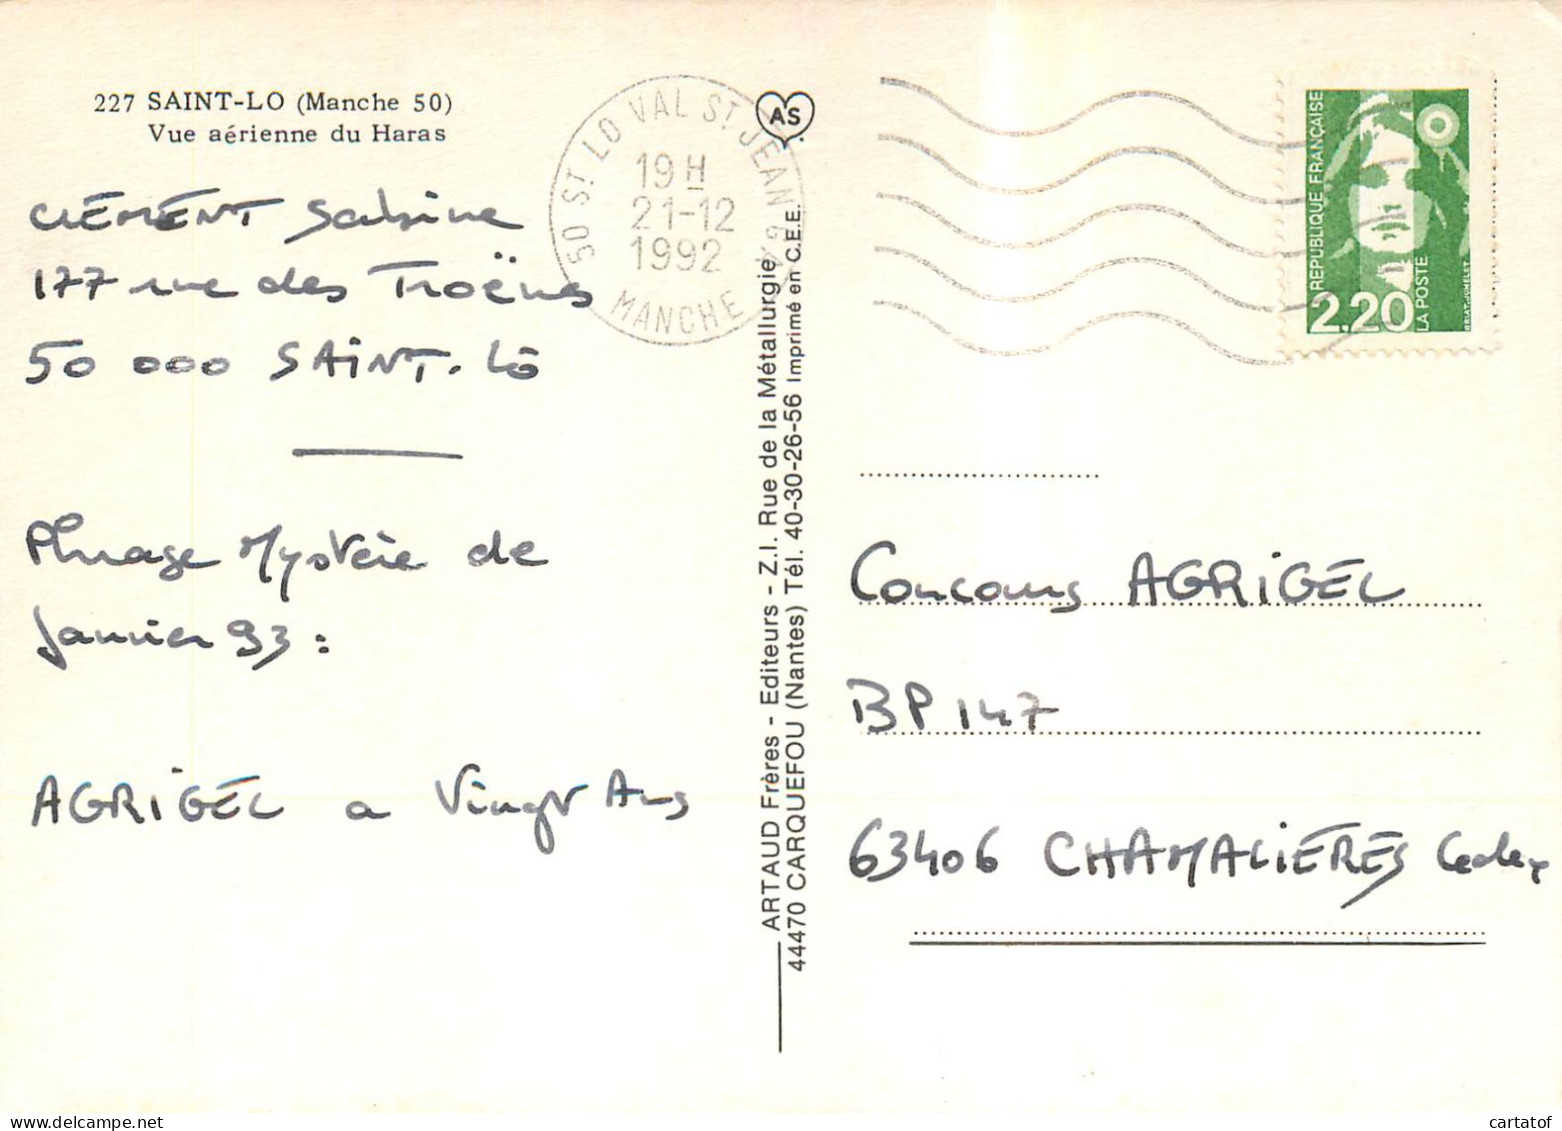 227 SAINT-LO (Manche 50)
Vue aérienne du Haras
CLÉMENT Sabine
177 rue des Troënes
50 000 SAINT-LÔ
Phrase Mystère de
Janvier 93 :
AGRIGEL a Vingt Ans
50 ST LO VAL ST JEAN
19 H
21-12
1992
MANCHE
AS
ARTAUD Frères - Editeurs - Z.I. Rue de la Métallurgie
44470 CARQUEFOU (Nantes) Tél. 40-30-26-56 Imprimé en C.E.E.
REPUBLIQUE FRANÇAISE
2.20
LA POSTE
BRIAT-JUMELET
Concours AGRIGEL
BP 147
63406 CHAMALIÈRES Cedex
cartatof